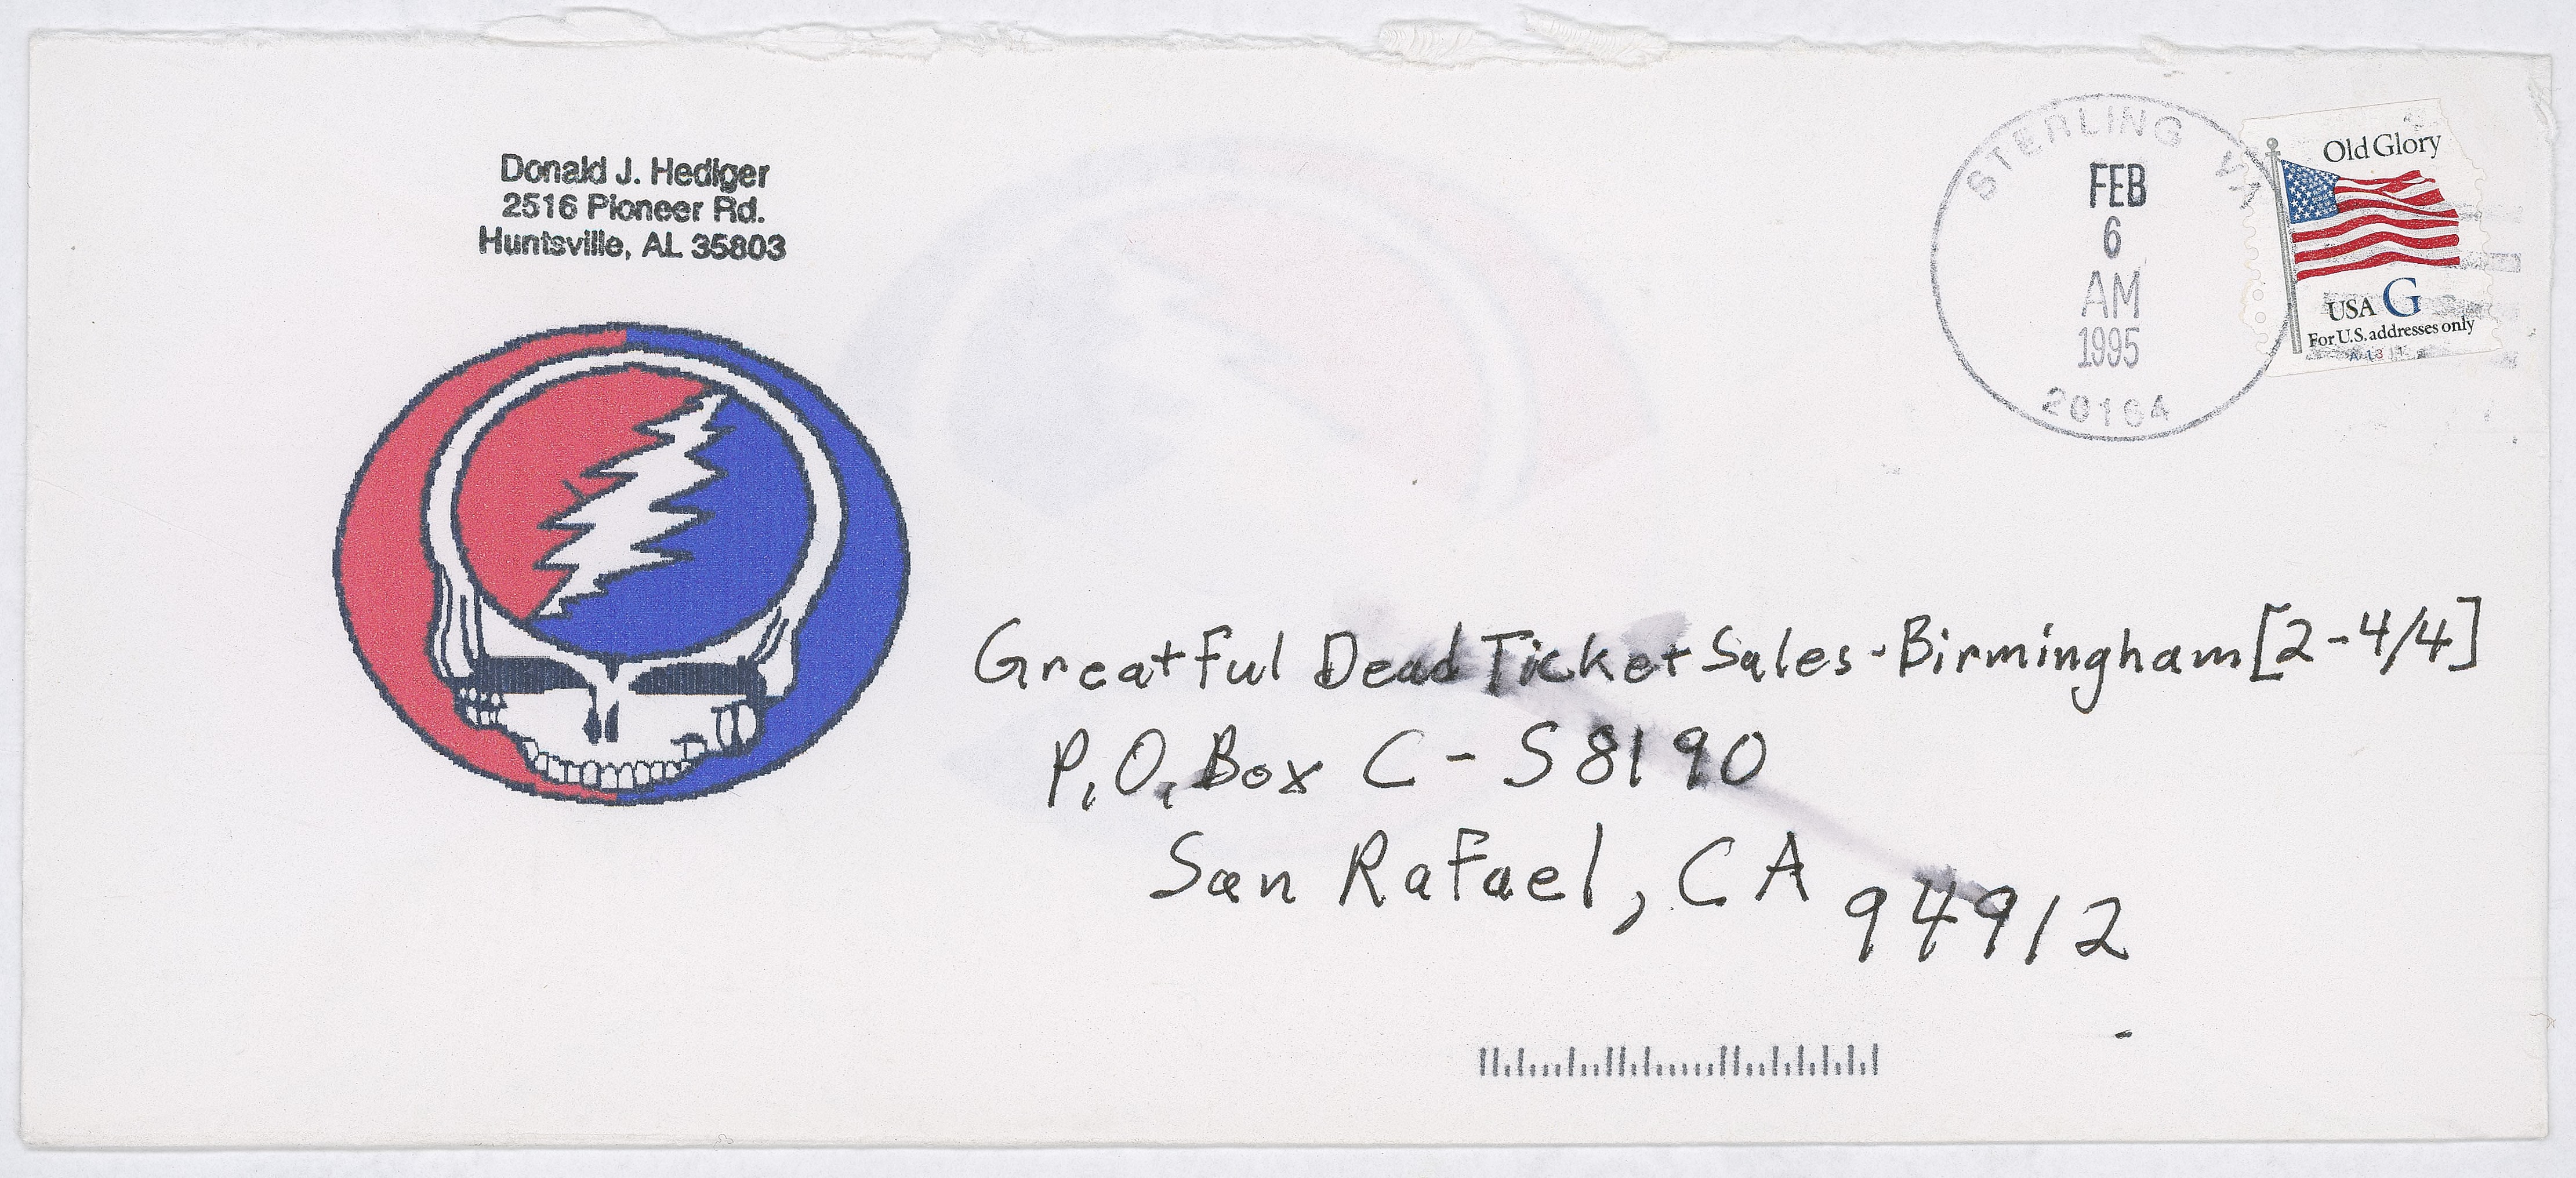 Donald J. Hediger
2516 Pioneer Rd.
Huntsville, AL 35803
STERLING VA
FEB
6
AM
1995
20164
Old Glory
USA G
For U.S. addresses only
Greatful Dead Ticket Sales-Birmingham [2-4/4]
P.O. Box C-S8190
San Rafael, CA 94912